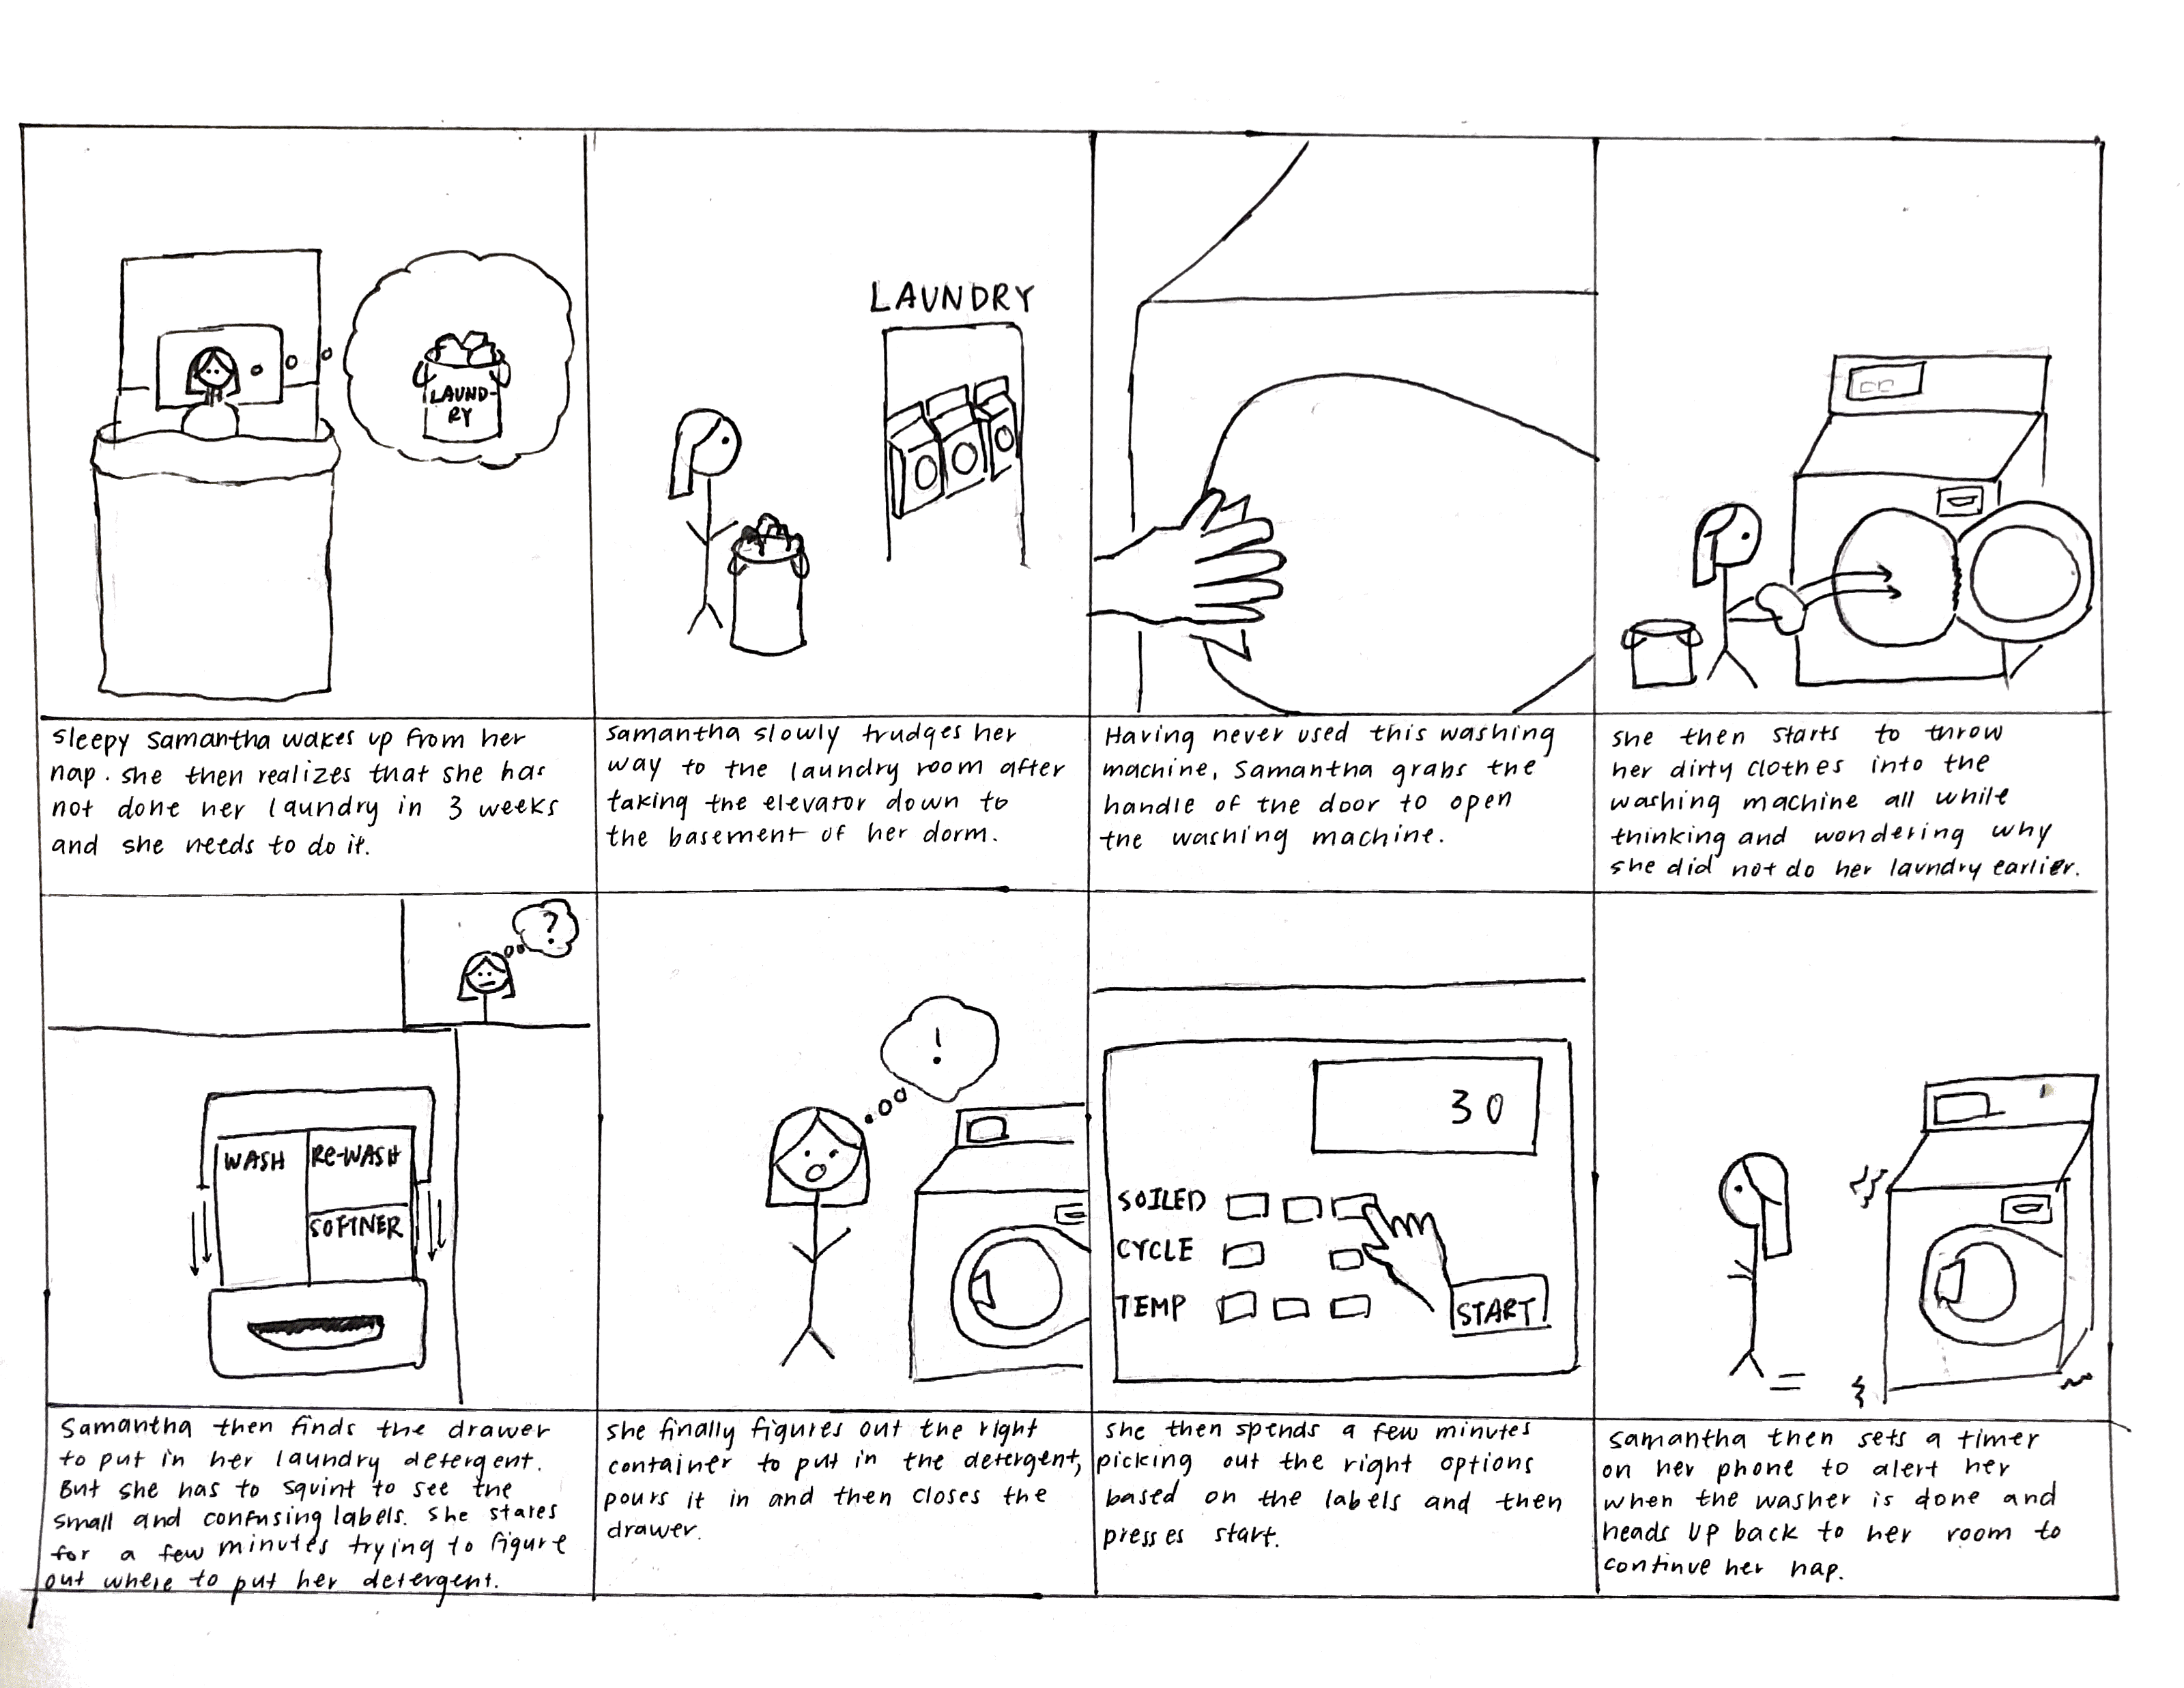 LAUND-
RY
LAUNDRY
Sleepy Samantha wakes up from her
nap. She then realizes that she has
not done her laundry in 3 weeks
and she needs to do it.
Samantha slowly trudges her
way to the laundry room after
taking the elevator down to
the basement of her dorm.
Having never used this washing
machine, Samantha grabs the
handle of the door to open
the washing machine.
She then starts to throw
her dirty clothes into the
washing machine all while
thinking and wondering why
she did not do her laundry earlier.
?
WASH
RE-WASH
SOFTNER
!
30
SOILED
CYCLE
TEMP
START
Samantha then finds the drawer
to put in her laundry detergent.
But she has to squint to see the
small and confusing labels. She stares
for a few minutes trying to figure
out where to put her detergent.
She finally figures out the right
container to put in the detergent,
pours it in and then closes the
drawer.
She then spends a few minutes
picking out the right options
based on the labels and then
presses start.
Samantha then sets a timer
on her phone to alert her
when the washer is done and
heads up back to her room to
continue her nap.